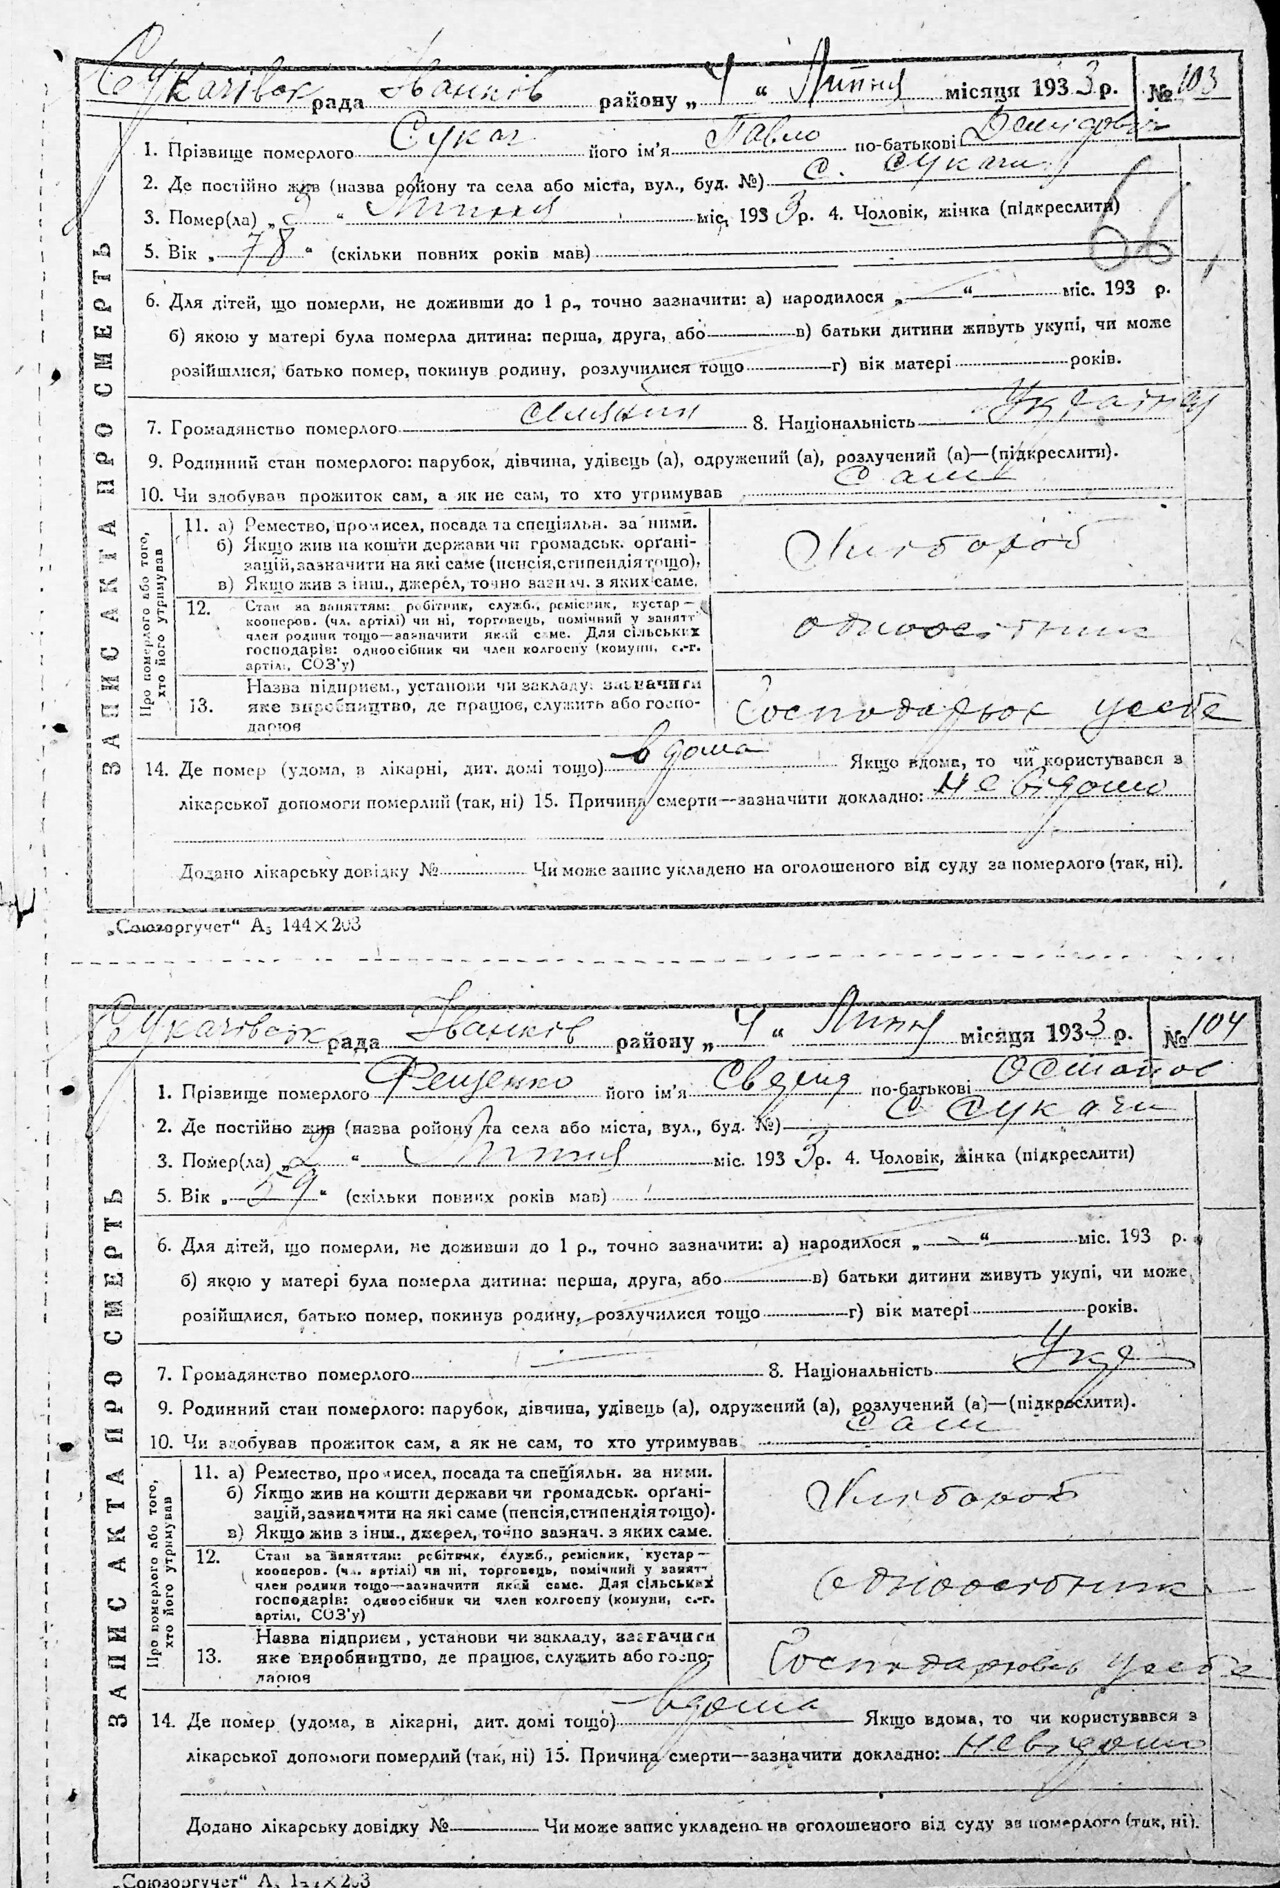 Сукачівськ рада Іванків району „ 4 “ Липня місяця 1933 р. № 103
1. Прізвище померлого Сукач його ім'я Павло по-батькові Демидович
2. Де постійно жив (назва району та села або міста, вул., буд. №) с. Сукачи
3. Помер(ла) „ 3 “ Липня міс. 193 3 р. 4. Чоловік, жінка (підкреслити)
5. Вік „ 78 “ (скільки повних років мав)
66
6. Для дітей, що померли, не доживши до 1 р., точно зазначити: а) народилося „ “ міс. 193 р.
б) якою у матері була померла дитина: перша, друга, або в) батьки дитини живуть укупі, чи може
розійшлися, батько помер, покинув родину, розлучилися тощо г) вік матері років.
7. Громадянство померлого селянин 8. Національність
9. Родинний стан померлого: парубок, дівчина, удівець (а), одружений (а), розлучений (а)—(підкреслити).
10. Чи здобував прожиток сам, а як не сам, то хто утримував сам
ЗАПИС АКТА ПРО СМЕРТЬ
Про померлого або того,
хто його утримував
11. а) Ремество, промисел, посада та спеціяльн. за ними.
б) Якщо жив на кошти держави чи громадськ. органі-
зацій, зазначити на які саме (пенсія, стипендія тощо).
в) Якщо жив з інш., джерел, точно зазнач. з яких саме.
Хлібороб
12. Стан за заняттям: робітник, служб., ремісник, кустар—
кооперов. (чл. артілі) чи ні, торговець, помічний у занятт
член родини тощо—зазначити який саме. Для сільських
господарів: одноосібник чи член колгоспу (комуни, с.-г.
артілі, СОЗ'у)
одноосібник
13. Назва підприєм., установи чи закладу, зазначити
яке виробництво, де працює, служить або госпо-
дарює
усебе
14. Де помер (удома, в лікарні, дит. домі тощо) вдома Якщо вдома, то чи користувався з
лікарської допомоги померлий (так, ні) 15. Причина смерти—зазначити докладно: не відомо
Додано лікарську довідку № Чи може запис укладено на оголошеного від суду за померлого (так, ні).
„Союзоргучет“ А₅ 144×203
Сукачівськ рада Іванків району „ 4 “ Липня місяця 1933 р. № 104
1. Прізвище померлого Фещенко його ім'я по-батькові Остапов
2. Де постійно жив (назва району та села або міста, вул., буд. №) с Сукачи
3. Помер(ла) „ 2 “ Липня міс. 193 3 р. 4. Чоловік, жінка (підкреслити)
5. Вік „ 59 “ (скільки повних років мав)
6. Для дітей, що померли, не доживши до 1 р., точно зазначити: а) народилося „ “ міс. 193 р.
б) якою у матері була померла дитина: перша, друга, або в) батьки дитини живуть укупі, чи може
розійшлися, батько помер, покинув родину, розлучилися тощо г) вік матері років.
7. Громадянство померлого 8. Національність Укр
9. Родинний стан померлого: парубок, дівчина, удівець (а), одружений (а), розлучений (а)—(підкреслити).
10. Чи здобував прожиток сам, а як не сам, то хто утримував сам
ЗАПИС АКТА ПРО СМЕРТЬ
Про померлого або того,
хто його утримував
11. а) Ремество, промисел, посада та спеціяльн. за ними.
б) Якщо жив на кошти держави чи громадськ. органі-
зацій, зазначити на які саме (пенсія, стипендія тощо).
в) Якщо жив з інш., джерел, точно зазнач. з яких саме.
Хлібороб
12. Стан за заняттям: робітник, служб., ремісник, кустар—
кооперов. (чл. артілі) чи ні, торговець, помічний у занятт
член родини тощо—зазначити який саме. Для сільських
господарів: одноосібник чи член колгоспу (комуни, с.-г.
артілі, СОЗ'у)
одноосібник
13. Назва підприєм, установи чи закладу, зазначити
яке виробництво, де працює, служить або госпо-
дарює
усебе
14. Де помер (удома, в лікарні, дит. домі тощо) вдома Якщо вдома, то чи користувався з
лікарської допомоги померлий (так, ні) 15. Причина смерти—зазначити докладно: невідомо
Додано лікарську довідку № Чи може запис укладено на оголошеного від суду за померлого (так, ні).
„Союзоргучет“ А₅ 144×203